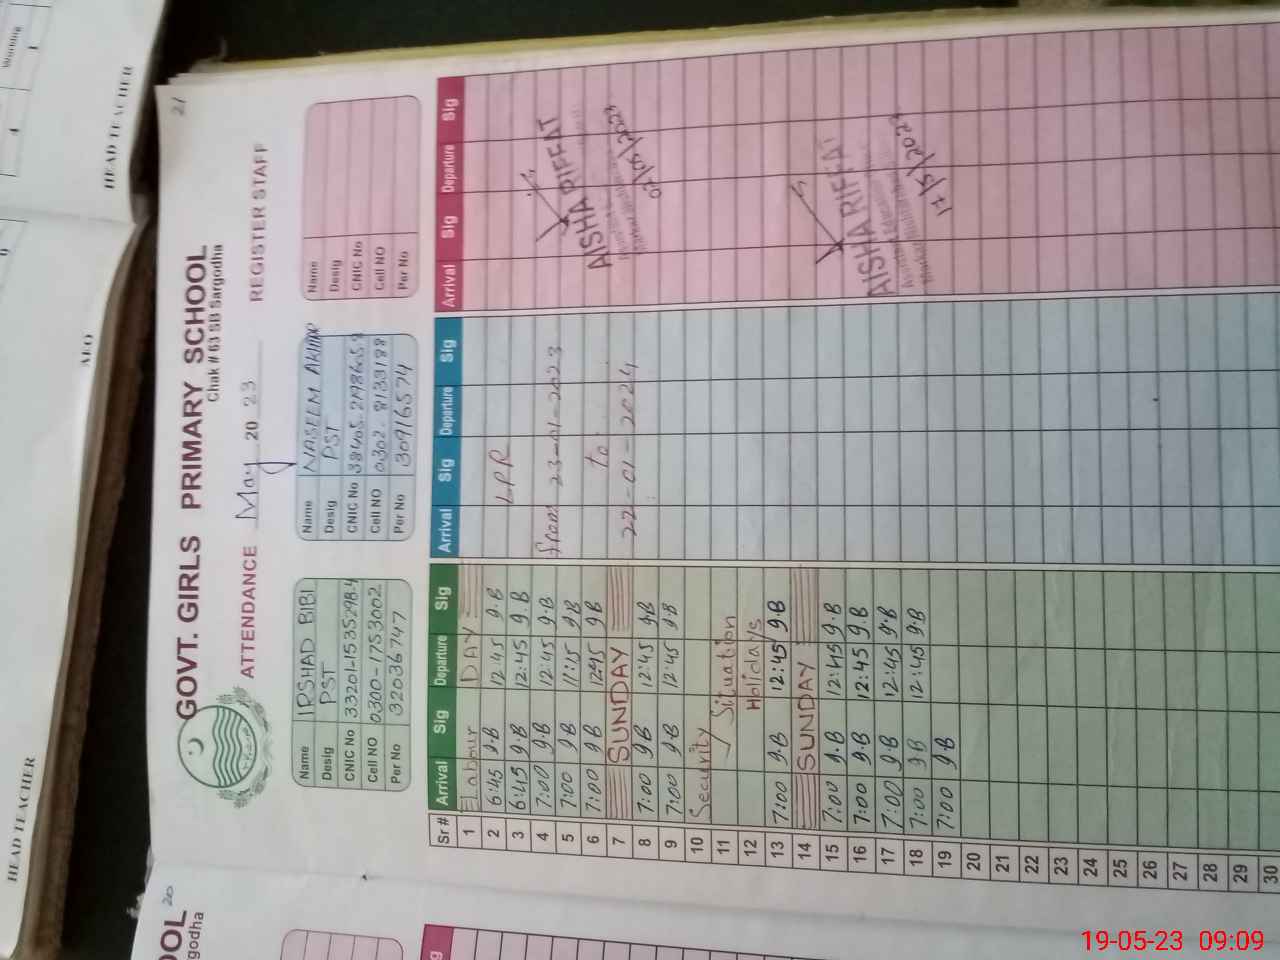 21
GOVT. GIRLS PRIMARY SCHOOL
Chak # 63 SB Sargodha
ATTENDANCE May 20 23 REGISTER STAFF
Name IRSHAD BIBI
Desig PST
CNIC No 33201-1535298-4
Cell NO 0300-1753002
Per No 32036747
Name NASEEM AKHTAR
Desig PST
CNIC No
Cell NO 0302-8133188
Per No 30916574
Name
Desig
CNIC No
Cell NO
Per No
Sr # Arrival Sig Departure Sig Arrival Sig Departure Sig Arrival Sig Departure Sig
1 Labour DAY
2 6:45 g.B 12:45 g.B LPR
3 6:45 g.B 12:45 g.B
4 7:00 g.B 12:45 g.B from 23-01-2023
5 7:00 g.B 11:15 g.B
6 7:00 g.B 12:45 g.B to
7 SUNDAY 22-01-2024
8 7:00 g.B 12:45 g.B
9 7:00 g.B 12:45 g.B
10 Security
11 Situation
12 Holidays
13 7:00 g.B 12:45 g.B
14 SUNDAY
15 7:00 g.B 12:45 g.B
16 7:00 g.B 12:45 g.B
17 7:00 g.B 12:45 g.B
18 7:00 g.B 12:45 g.B
19 7:00 g.B
20
21
22
23
24
25
26
27
28
29
30
AISHA RIFFAT
02/05/2023
AISHA RIFFAT
17/5/2023
HEAD TEACHER
AEO
HEAD TEACHER
Working
20
OOL
godha
19-05-23 09:09